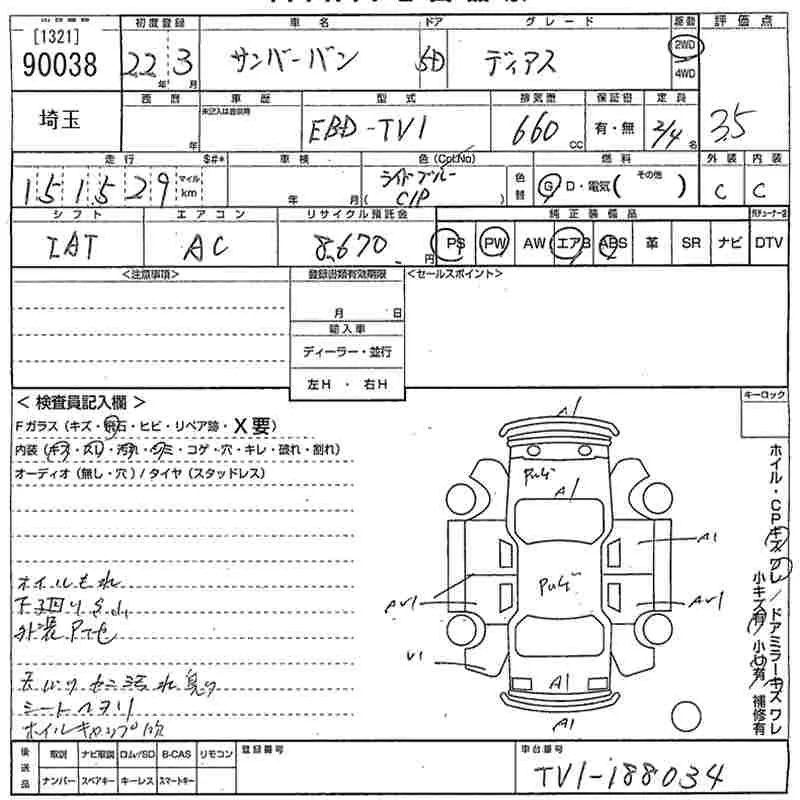 [1321]
90038
初度登録
車名
ドア
グレード
駆動
評価点
22年3月
サンバーバン
5D
ディアス
2WD
4WD
埼玉
西暦
年
車歴
未記入は自家用
型式
排気量
保証書
定員
EBD-TV1
660cc
有・無
2/4名
3.5
走行
$#*
車検
色(Col.No)
燃料
外装
内装
151529
マイル
km
年 月
ライトブルー
(C1P)
色替
G D・電気( その他 )
C
C
シフト
エアコン
リサイクル預託金
純正装備品
IAT
AC
8,670円
PS
PW
AW
エアB
ABS
革
SR
ナビ
DTV
<注意事項>
登録書類有効期限
<セールスポイント>
月 日
輸入車
ディーラー・並行
左H・右H
<検査員記入欄>
キーロック
Fガラス(キズ・飛石・ヒビ・リペア跡・X要)
内装(キズ・スレ・汚れ・シミ・コゲ・穴・キレ・破れ・割れ)
オーディオ(無し・穴)/タイヤ(スタッドレス)
オイルもれ
下回りS.d.
外装Pてむ
シートヘタリ
ホイルキャップ欠
A1
Pレげ
A1
A1
Pレげ
AU1
AU1
U1
A1
A1
ホイル・CPキズワレ/ドアミラーキズワレ
小キズ有 小凹有 補修有
後送品
取説
ナビ取説
ロム/SD
B-CAS
リモコン
ナンバー
スペアキー
キーレス
スマートキー
登録番号
車台番号
TV1-188034